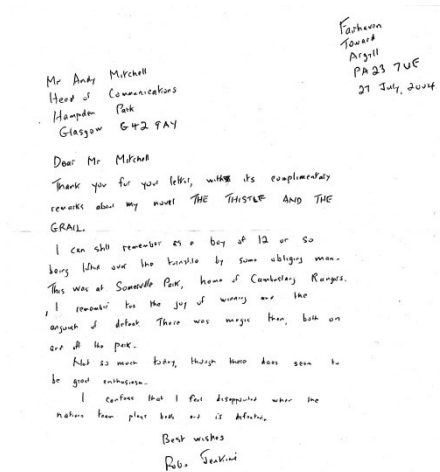 Fairhaven
Toward
Argyll
PA23 7UE
27 July, 2004
Mr Andy Mitchell
Head of Communications
Hampden Park
Glasgow G42 9AY
Dear Mr Mitchell
Thank you for your letter, with its complimentary
remarks about my novel THE THISTLE AND THE
GRAIL.
I can still remember as a boy of 12 or so
being lifted over the turnstile by some obliging man.
This was at Somerville Park, home of Cambuslang Rangers.
I remember too the joy of winning and the
anguish of defeat. There was magic then, both on
and off the park.
Not so much today, though there does seem to
be great enthusiasm.
I confess that I feel disappointed when the
nation's team plays badly and is defeated.
Best wishes
Robin Jenkins